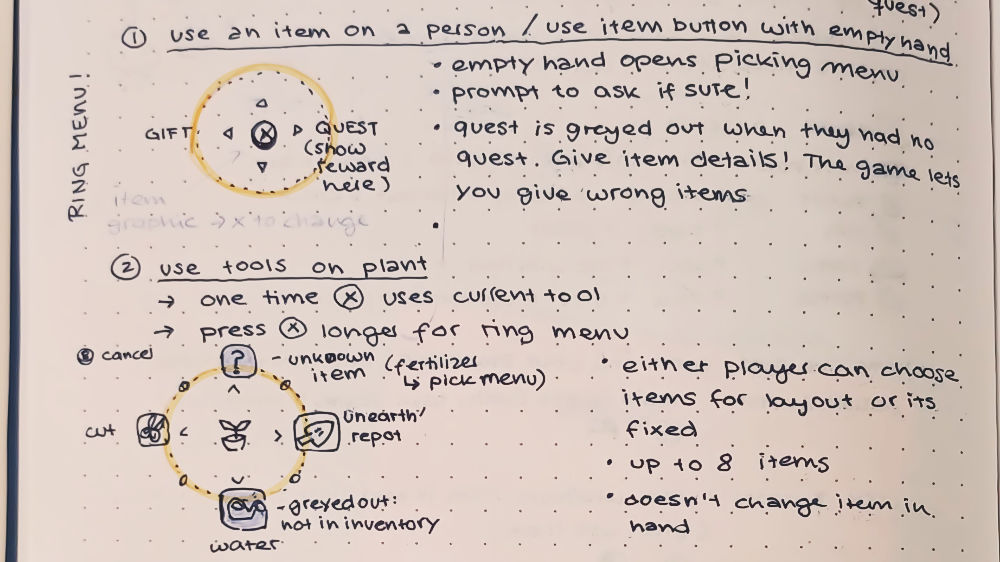 quest)
RING MENU!
① use an item on a person / use item button with empty hand
• empty hand opens picking menu
• prompt to ask if sure!
• quest is greyed out when they had no
quest. Give item details! The game lets
you give wrong items
GIFT
QUEST
(show
reward
here)
item
graphic → x to change
② use tools on plant
→ one time ⓧ uses current tool
→ press ⓧ longer for ring menu
Ⓑ cancel
?
- unknown
item
(fertilizes
↳ pick menu)
cut
unearth/
repot
- greyed out:
not in inventory
water
• either player can choose
items for layout or its
fixed
• up to 8 items
• doesn't change item in
hand